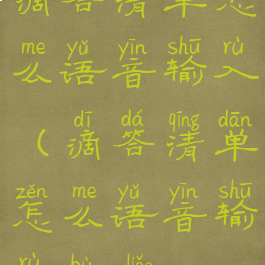 滴答清单怎
me yǔ yīn shū rù
么语音输入
dī dá qīng dān
（滴答清单
zěn me yǔ yīn shū
怎么语音输
rù bù liǎo